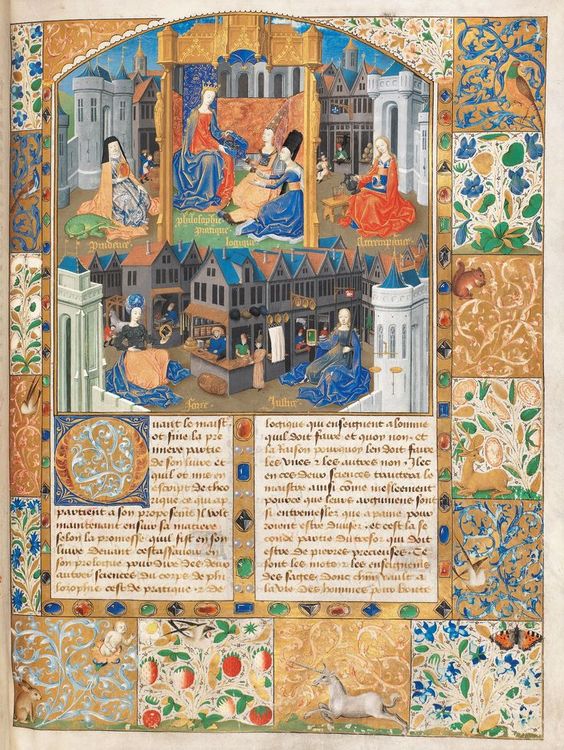 philosophie
pratique
logique
Prudence
Attrempance
Force
Justice
Quant le maist
et fine la pre
miere partie
de son livre et
quil ot mis en
escript de theo
rique ce qui ap
partient a son propos il volt
maintenant ensuir sa matiere
selon la promesse quil fist en son
livre devant cestassavoir en
son prologue pour dire des deux
autres sciences du corps de phi
losophie cest de pratique et de
logique qui enseignent a lomme
quil doit faire et quoy non et
la raison pourquoy len doit faire
les unes et les autres non
en ces deux sciences traittera le
maistre ainsi comme meslement
pource que leurs argumens sont
si entremeslez que a paine pour
roient estre divisez et cest la se
conde partie du tresor qui doit
estre de pierres precieuses Ce
sont les mots et les enseignemens
des sages dont chun vault a
la vie des hommes pour